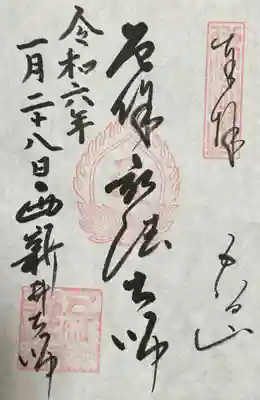 奉拝
五智山
厄除弘法大師
令和六年
一月二十八日
西新井大師